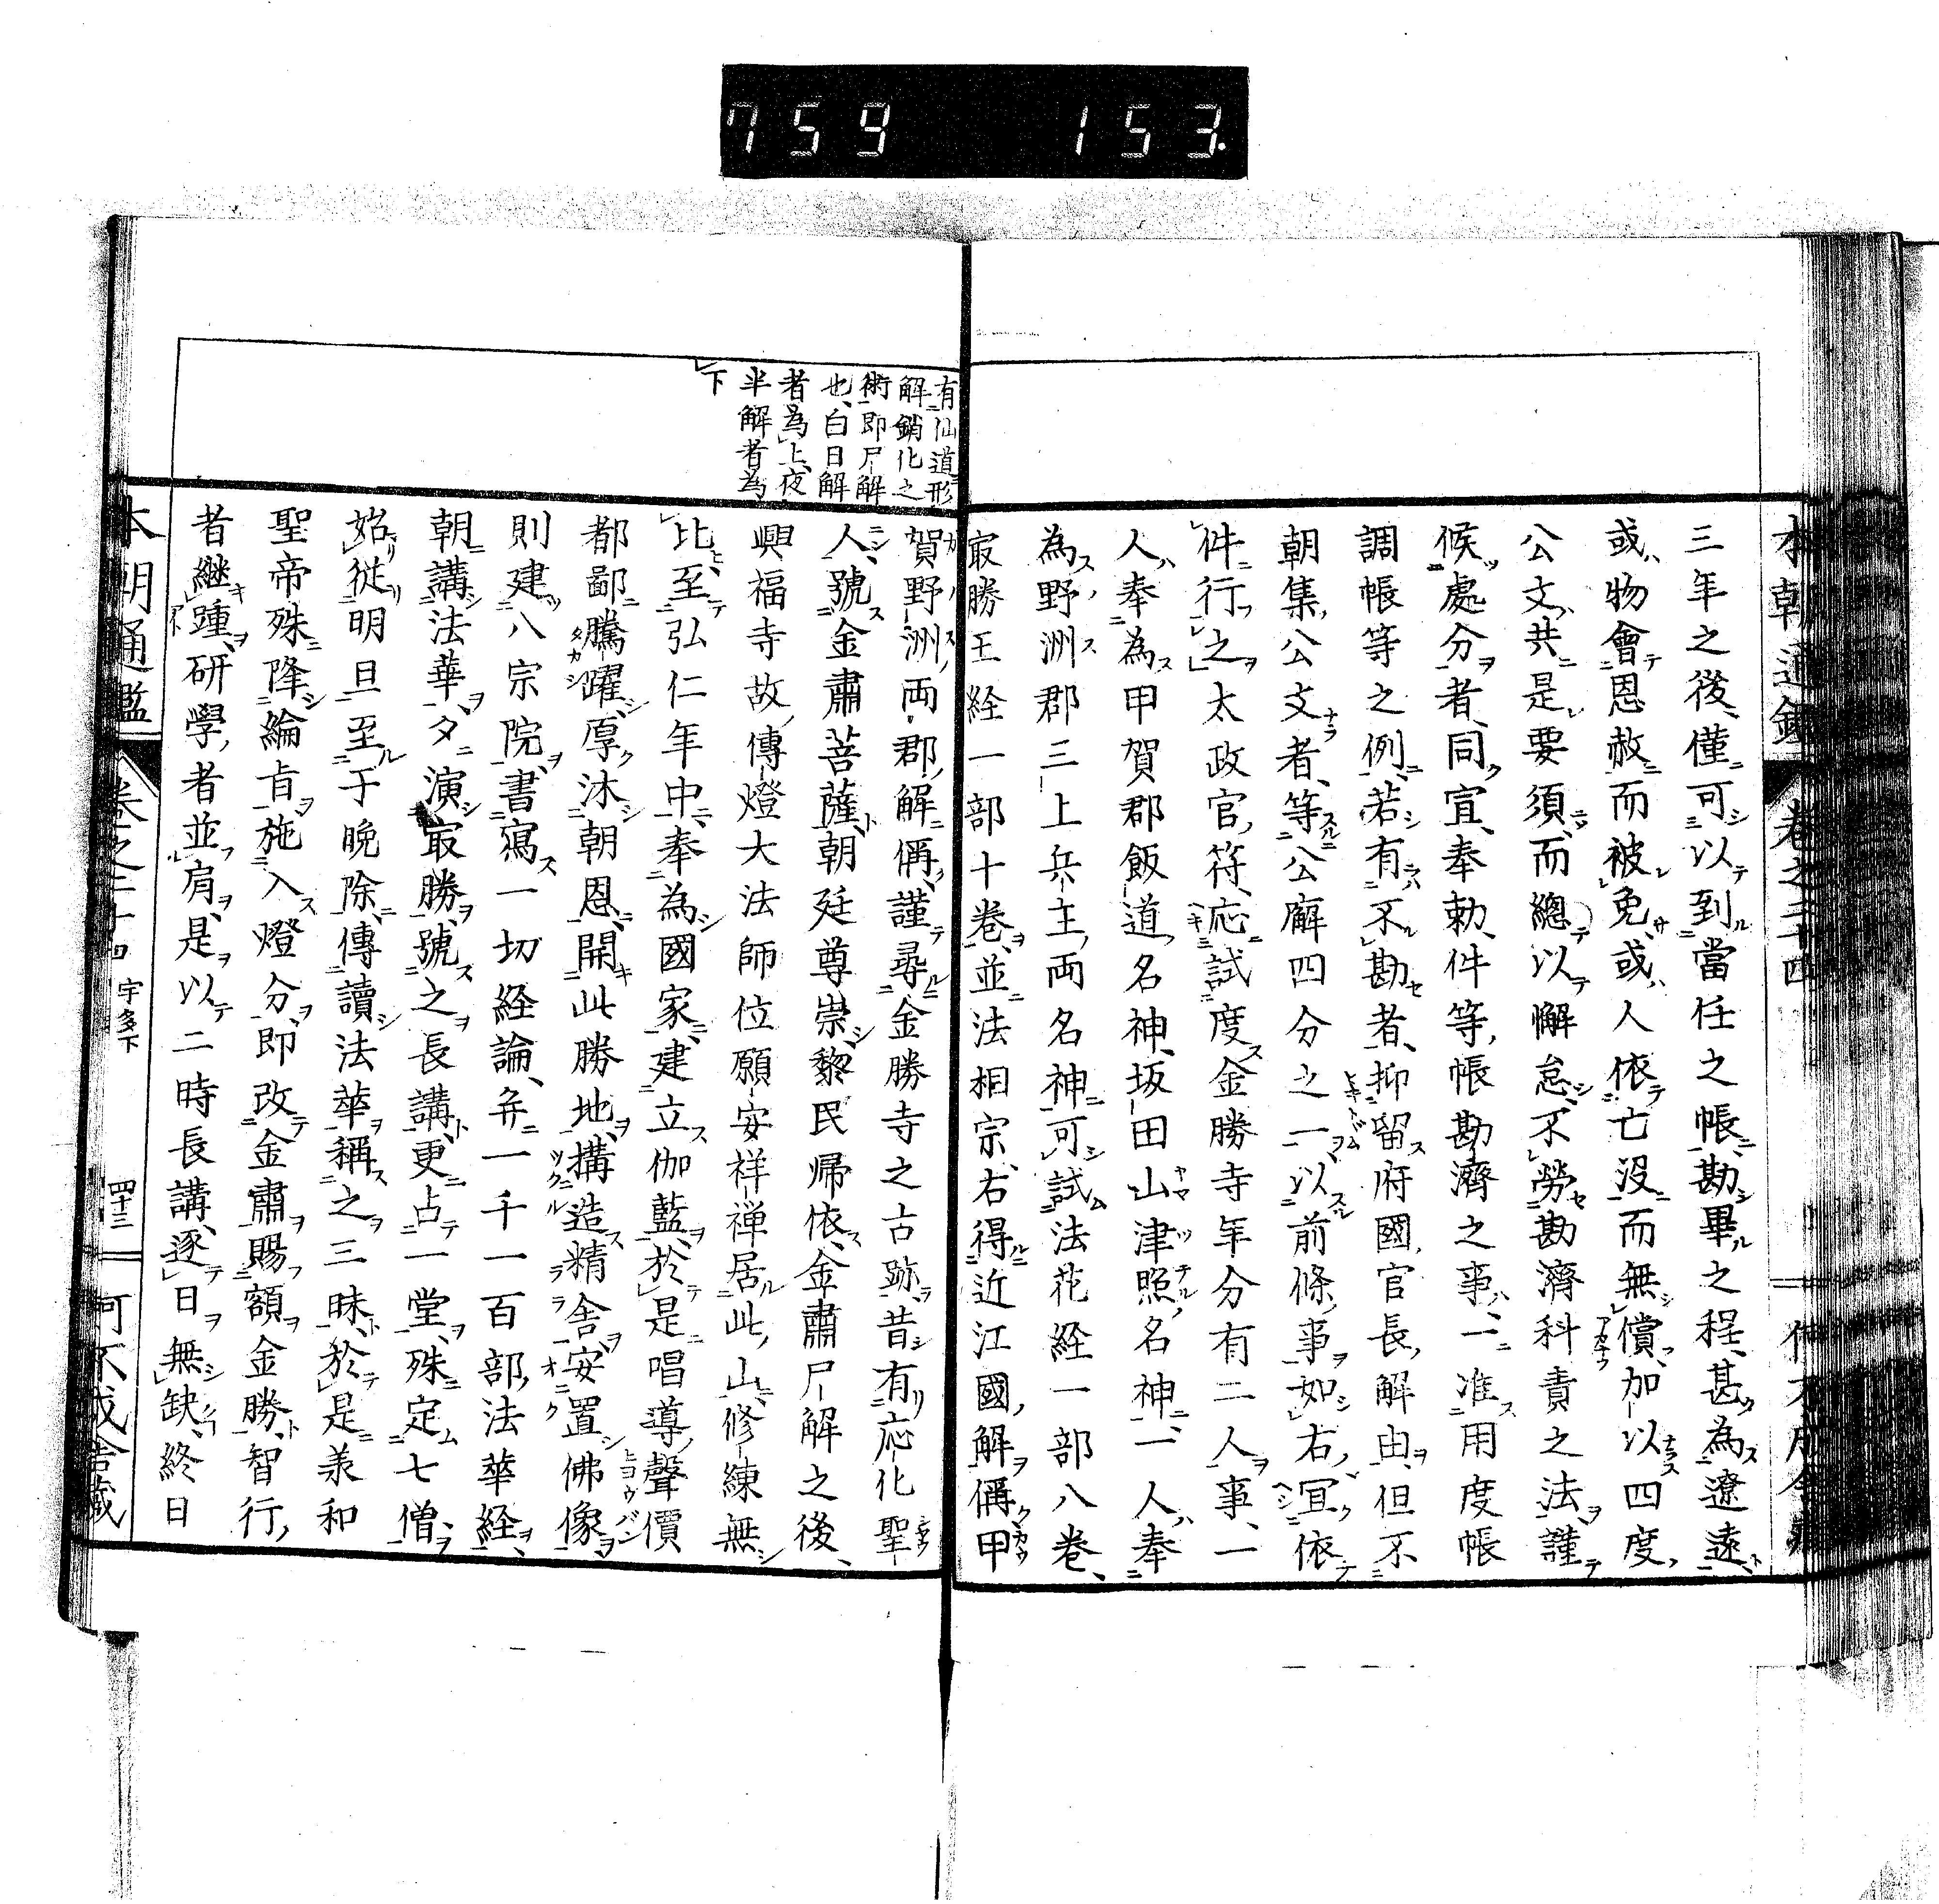 759 153.
三年之後、僅可以到當任之帳、勘畢之程、甚為遼遠、
或物會恩赦而被免、或人依亡没而無償、加以四度
公文、共是要須、而總以懈怠、不勞勘濟科責之法、謹
候處分者、同宜、奉勅、件等帳勘濟之事、一准用度帳
調帳等之例、若有不勘者、抑留府國官長解由、但不
朝集公文者、等公廨四分之一、以前條事如右、宜依
件行之太政官符、応試度金勝寺年分有二人事、一
人奉為甲賀郡飯道名神、坂田山津照名神、一人奉
為野洲郡三上兵主両名神可試法花経一部八巻、
㝡勝王経一部十巻、並法相宗、右得近江國解偁甲
有仙道形
解銷化之
術即尸解
也、白日解
者為上、夜
半解者為
下
賀野洲両郡解偁、謹尋金勝寺之古跡、昔有応化聖
人、號金肅菩薩、朝廷尊崇、黎民帰依、金肅尸解之後、
興福寺故傳燈大法師位願安祥禅居此山、修練無
比、至弘仁年中、奉為國家、建立伽藍、於是唱導聲價
都鄙騰躍、厚沐朝恩、開此勝地、搆造精舎、安置佛像、
則建八宗院、書寫一切経論、并一千一百部法華経、
朝講法華、夕演㝡勝、號之長講、更占一堂、殊定七僧、
始従明旦至于晩除、傳讀法華、稱之三昧、於是承和
聖帝殊降綸旨、施入燈分、即改金肅賜額金勝、智行
者継踵、研學者並肩、是以二時長講、逐日無缺、終日
本朝通鑑 巻之二十四 宇多下 四十三